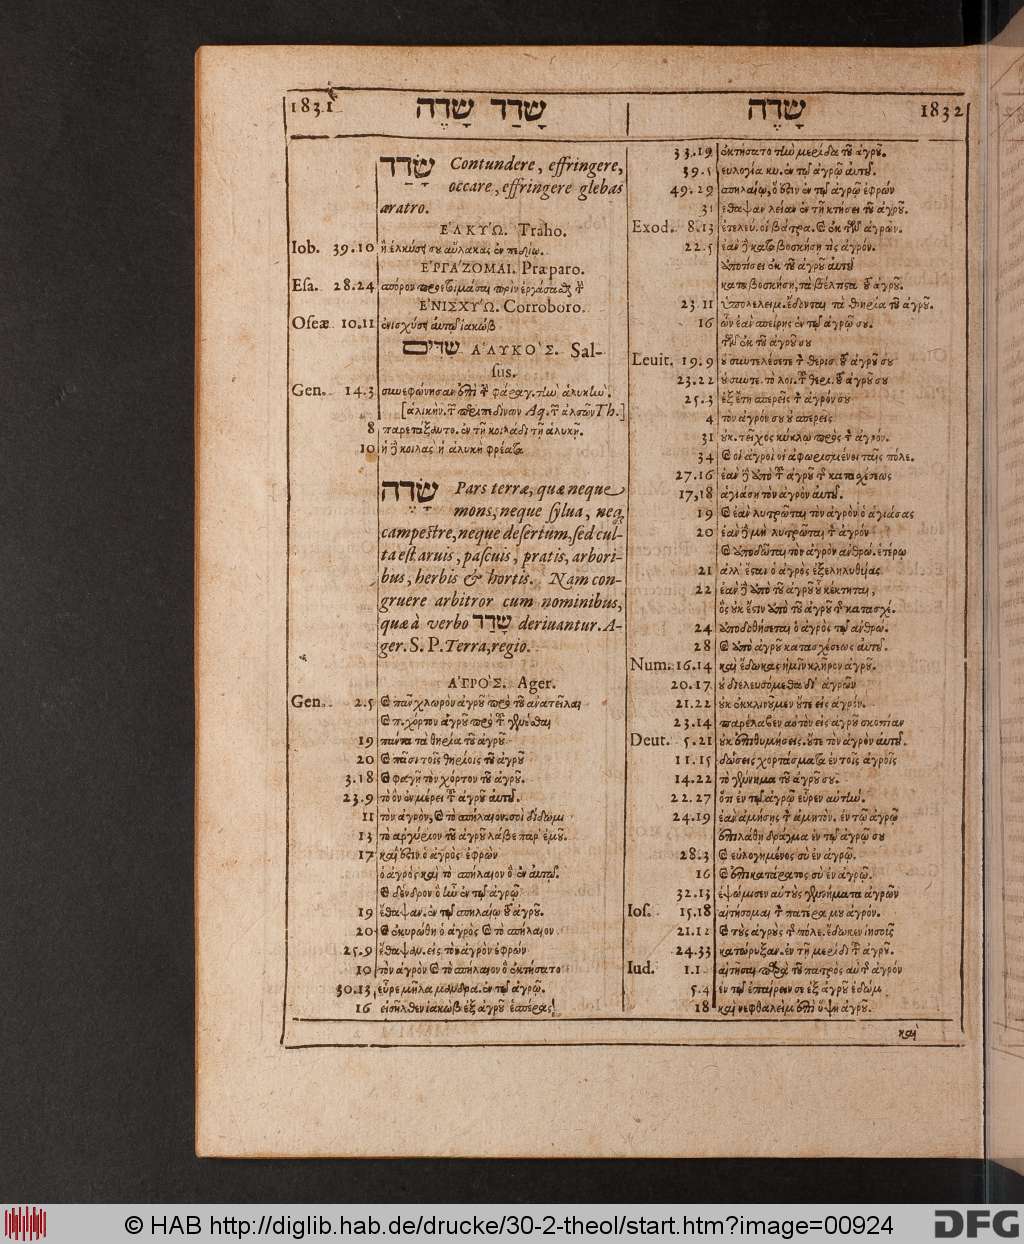 1831 שָׂדַד שָׂדֶה
שָׂדֶה 1832
שָׂדַד Contundere, effringere,
occare, effringere glebas
aratro.
ἙΛΚΎΩ. Traho.
Iob. 39.10 ἢ ἑλκύσει σου αὔλακας ἐν πεδίῳ.
ἘΡΓΆΖΟΜΑΙ. Præparo.
Esa. 28.24 σπόρον προετοιμάσαι πρὶν ἐργάσασθαι τ̀
ἘΝΙΣΧΎΩ. Corroboro.
Oseæ 10.11 ἐνισχύσει αὐτῷ ἰακὼβ
שדים ἉΛΥΚῸΣ. Sal-
sus.
Gen. 14.3 συνεφώνησαν ἐπὶ τ̀ φάραγ. τὴν ἁλυκήν.
[ἁλικὴν. τ̃ πεδινῶν Aq. τ̃ ἀλσῶν Th.]
8 παρετάξαντο. ἐν τῇ κοιλάδι τῇ ἁλυκῇ.
10 ἡ δὲ κοιλὰς ἡ ἁλυκὴ φρέατα
שָׂדֶה Pars terræ, quæ neque
mons, neque sylua, neq;
campestre, neque desertum, sed cul-
ta est aruis, pascuis, pratis, arbori-
bus, herbis & hortis. Nam con-
gruere arbitror cum nominibus,
quæ à verbo שָׂדַד deriuantur. A-
ger. S. P. Terra, regio.
ἈΓΡῸΣ. Ager.
Gen. 2.5 καὶ πᾶν χλωρὸν ἀγροῦ πρὸ τοῦ ἀνατεῖλαι
καὶ π. χόρτον ἀγροῦ πρὸ τ̃ γενέσθαι
19 πάντα τὰ θηρία τοῦ ἀγροῦ
20 καὶ πᾶσι τοῖς θηρίοις τοῦ ἀγροῦ
3.18 καὶ φαγῇ τὸν χόρτον τοῦ ἀγροῦ.
23.9 τὸ ὂν ἐν μέρει τ̃ ἀγροῦ αὐτοῦ.
11 τὸν ἀγρὸν, καὶ τὸ σπήλαιον. σοὶ δίδωμι
13 τὸ ἀργύριον τοῦ ἀγροῦ λάβε παρ' ἐμοῦ.
17 καὶ ἔστιν ὁ ἀγρὸς ἐφρὼν
ὁ ἀγρὸς καὶ τὸ σπήλαιον ὃ ἐν αὐτῷ.
καὶ δένδρον ὃ ἦν ἐν τῷ ἀγρῷ
19 ἔθαψαν. ἐν τῷ σπηλαίῳ τοῦ ἀγροῦ.
20 καὶ ἐκυρώθη ὁ ἀγρὸς καὶ τὸ σπήλαιον
25.9 ἔθαψαν. εἰς τὸν ἀγρὸν ἐφρὼν
10 τὸν ἀγρὸν καὶ τὸ σπήλαιον ὃ ἐκτήσατο
30.13 εὗρε μῆλα μανδρα. ἐν τῷ ἀγρῷ.
16 εἰσῆλθεν ἰακὼβ ἐξ ἀγροῦ ἑσπέρας.
33.19 ἐκτήσατο τὴν μερίδα τοῦ ἀγροῦ.
39.5 εὐλογία κυ. ἐν τῷ ἀγρῷ αὐτοῦ.
49.29 σπηλαίῳ, ὅ ἐστιν ἐν τῷ ἀγρῷ ἐφρὼν
31 ἔθαψαν λείαν ἐν τῇ κτήσει τοῦ ἀγροῦ.
Exod. 8.13 ἐτελεύ. οἱ βάτρα. καὶ ἐκ τῶν ἀγρῶν.
22.5 ἐὰν δὲ καταβοσκήσῃ τὶς ἀγρόν.
ἀποτίσει ἐκ τοῦ ἀγροῦ αὐτοῦ
καταβοσκήσῃ, τὰ βέλτιστα τοῦ ἀγροῦ.
23.11 ὑπολελειμ. ἔδονται τὰ θηρία τοῦ ἀγροῦ.
16 ὧν ἐὰν σπείρῃς ἐν τῷ ἀγρῷ σου.
τῶν ἐκ τοῦ ἀγροῦ σου
Leuit. 19.9 οὐ συντελέσετε τ̀ θερισ. τοῦ ἀγροῦ σου
23.22 οὐ συντε. τὸ λοι. τ̃ θερι. τοῦ ἀγροῦ σου
25.3 ἓξ ἔτη σπερεῖς τ̀ ἀγρόν σου
4 τὸν ἀγρόν σου οὐ σπερεῖς
31 οὐκ. τεῖχος κύκλῳ πρὸς τ̀ ἀγρόν.
34 καὶ οἱ ἀγροὶ οἱ ἀφωρισμένοι ταῖς πόλε.
27.16 ἐὰν δὲ ἀπὸ τ̃ ἀγροῦ τ̃ κατασχέσεως
17,18 ἁγιάσῃ τὸν ἀγρὸν αὐτοῦ.
19 καὶ ἐὰν λυτρῶται τὸν ἀγρὸν ὁ ἁγιάσας
20 ἐὰν δὲ μὴ λυτρῶται τ̀ ἀγρὸν
καὶ ἀποδῶται τὸν ἀγρὸν ἀνθρώ. ἑτέρῳ
21 ἀλλ' ἔσται ὁ ἀγρὸς ἐξεληλυθυίας
22 ἐὰν δὲ ἀπὸ τοῦ ἀγροῦ οὗ κέκτηται,
ὃς οὐκ ἔστιν ἀπὸ τοῦ ἀγροῦ τ̃ κατασχέ.
24 ἀποδοθήσεται ὁ ἀγρὸς τῷ ἀνθρώ.
28 καὶ ἀπὸ ἀγροῦ κατασχέσεως αὐτοῦ.
Num. 16.14 καὶ ἔδωκας ἡμῖν κλῆρον ἀγροῦ.
20.17 οὐ διελευσόμεθα δι' ἀγρῶν
21.22 οὐκ ἐκκλινοῦμεν οὔτε εἰς ἀγρόν.
23.14 παρέλαβεν αὐτὸν εἰς ἀγροῦ σκοπιὰν
Deut. 5.21 οὐκ ἐπιθυμήσεις. οὔτε τὸν ἀγρὸν αὐτοῦ.
11.15 δώσεις χορτάσματα ἐν τοῖς ἀγροῖς
14.22 τὸ γέννημα τοῦ ἀγροῦ σου.
22.27 ὅτι ἐν τῷ ἀγρῷ εὗρεν αὐτήν.
24.19 ἐὰν ἀμήσῃς τ̀ ἀμητὸν. ἐν τῷ ἀγρῷ
ἐπιλάθῃ δράγμα ἐν τῷ ἀγρῷ σου
28.3 καὶ εὐλογημένος σὺ ἐν ἀγρῷ.
16 καὶ ἐπικατάρατος σὺ ἐν ἀγρῷ.
32.13 ἐψώμισεν αὐτοὺς γεννήματα ἀγρῶν
Ios. 15.18 αἰτήσομαι τ̀ πατέρα μου ἀγρόν.
21.12 καὶ τοὺς ἀγροὺς τ̃ πόλε. ἔδωκεν ἰησοῖς
24.33 κατώρυξαν. ἐν τῇ μερίδι τ̃ ἀγροῦ.
Iud. 1.1 αἰτῆσαι παρὰ τοῦ πατρὸς αὐ τ̀ ἀγρόν
5.4 ἐν τῷ ἐπαίρειν σε ἐξ ἀγροῦ ἐδώμ
18 καὶ νεφθαλεὶμ ἐπὶ ὕψη ἀγροῦ.
καὶ
© HAB http://diglib.hab.de/drucke/30-2-theol/start.htm?image=00924
DFG